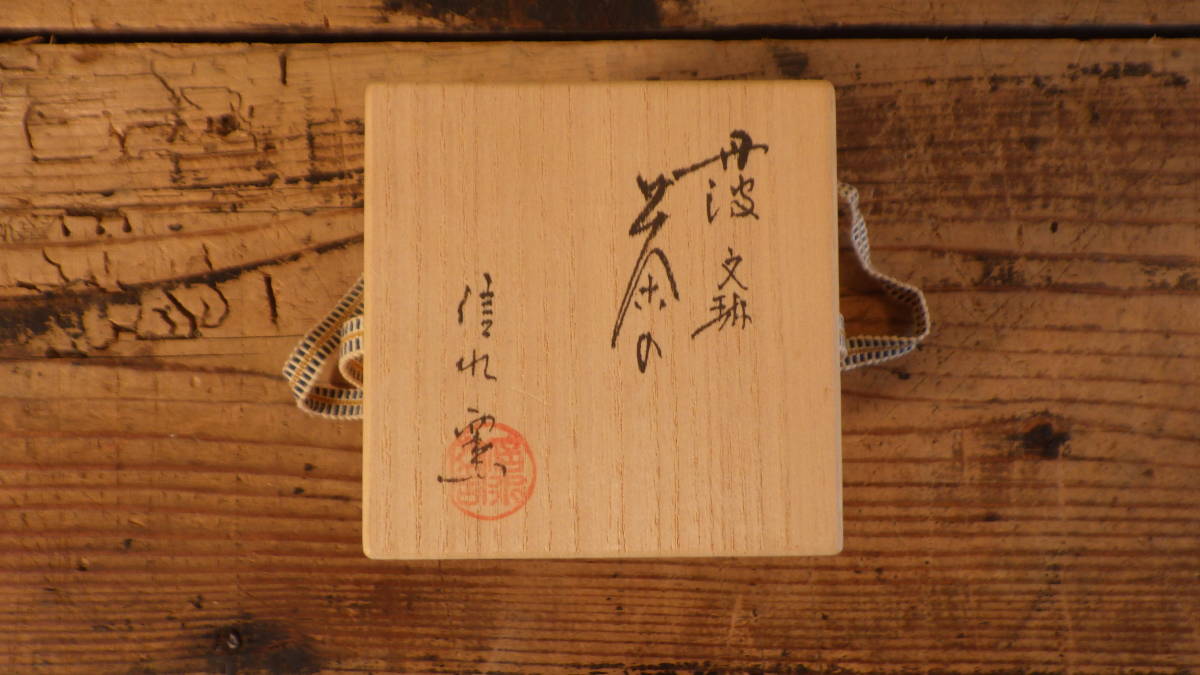 丹波 文琳
茶入
信水窯